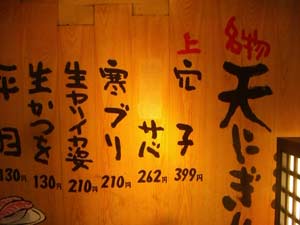 名物
天にぎり
上
穴子
399円
262円
寒ブリ
210円
生ヤリイカ姿
210円
生かつを
130円
平目
130円